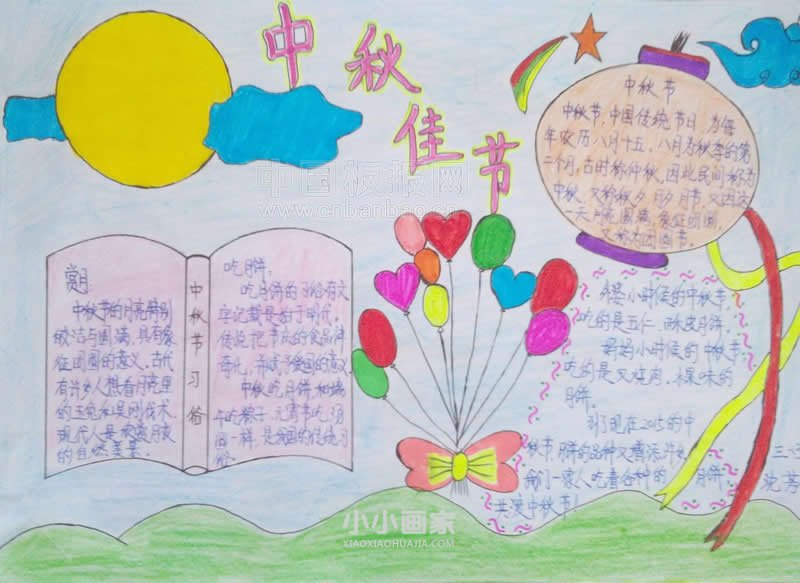 中秋佳节
中国板报网
www.cnbanbao.cn
中秋节
中秋节，中国传统节日，为每
年农历八月十五，八月为秋季的第
二个月，古时称仲秋，因此民间称为
中秋，又称秋夕
一天月亮圆满，象征团圆，
又称为团圆节。
赏月
中秋节的月亮特别
的皎洁与圆满，具有象
征团圆的意义。古代
有许多人想着月亮里
的玉兔和吴刚伐木，
现代人是欣赏月夜
的自然美景。
中秋节习俗
吃月饼：
吃月饼的习俗有文
字记载是始于明代，
传说把节庆的食品神
奇化，并赋予爱国的意义
中秋吃月饼，和端
午吃粽子、元宵节吃汤
圆一样，是我国的传统习
俗。
外婆小时候的中秋节，
吃的是五仁
月饼。
妈妈小时候的中秋节，
吃的是叉烧肉、
味的
月饼。
到了现在2015的中
秋节，月饼的品种又
我们一家人吃着各种的
月饼，
共度中秋节！
小小画家
XIAOXIAOHUAJIA.COM